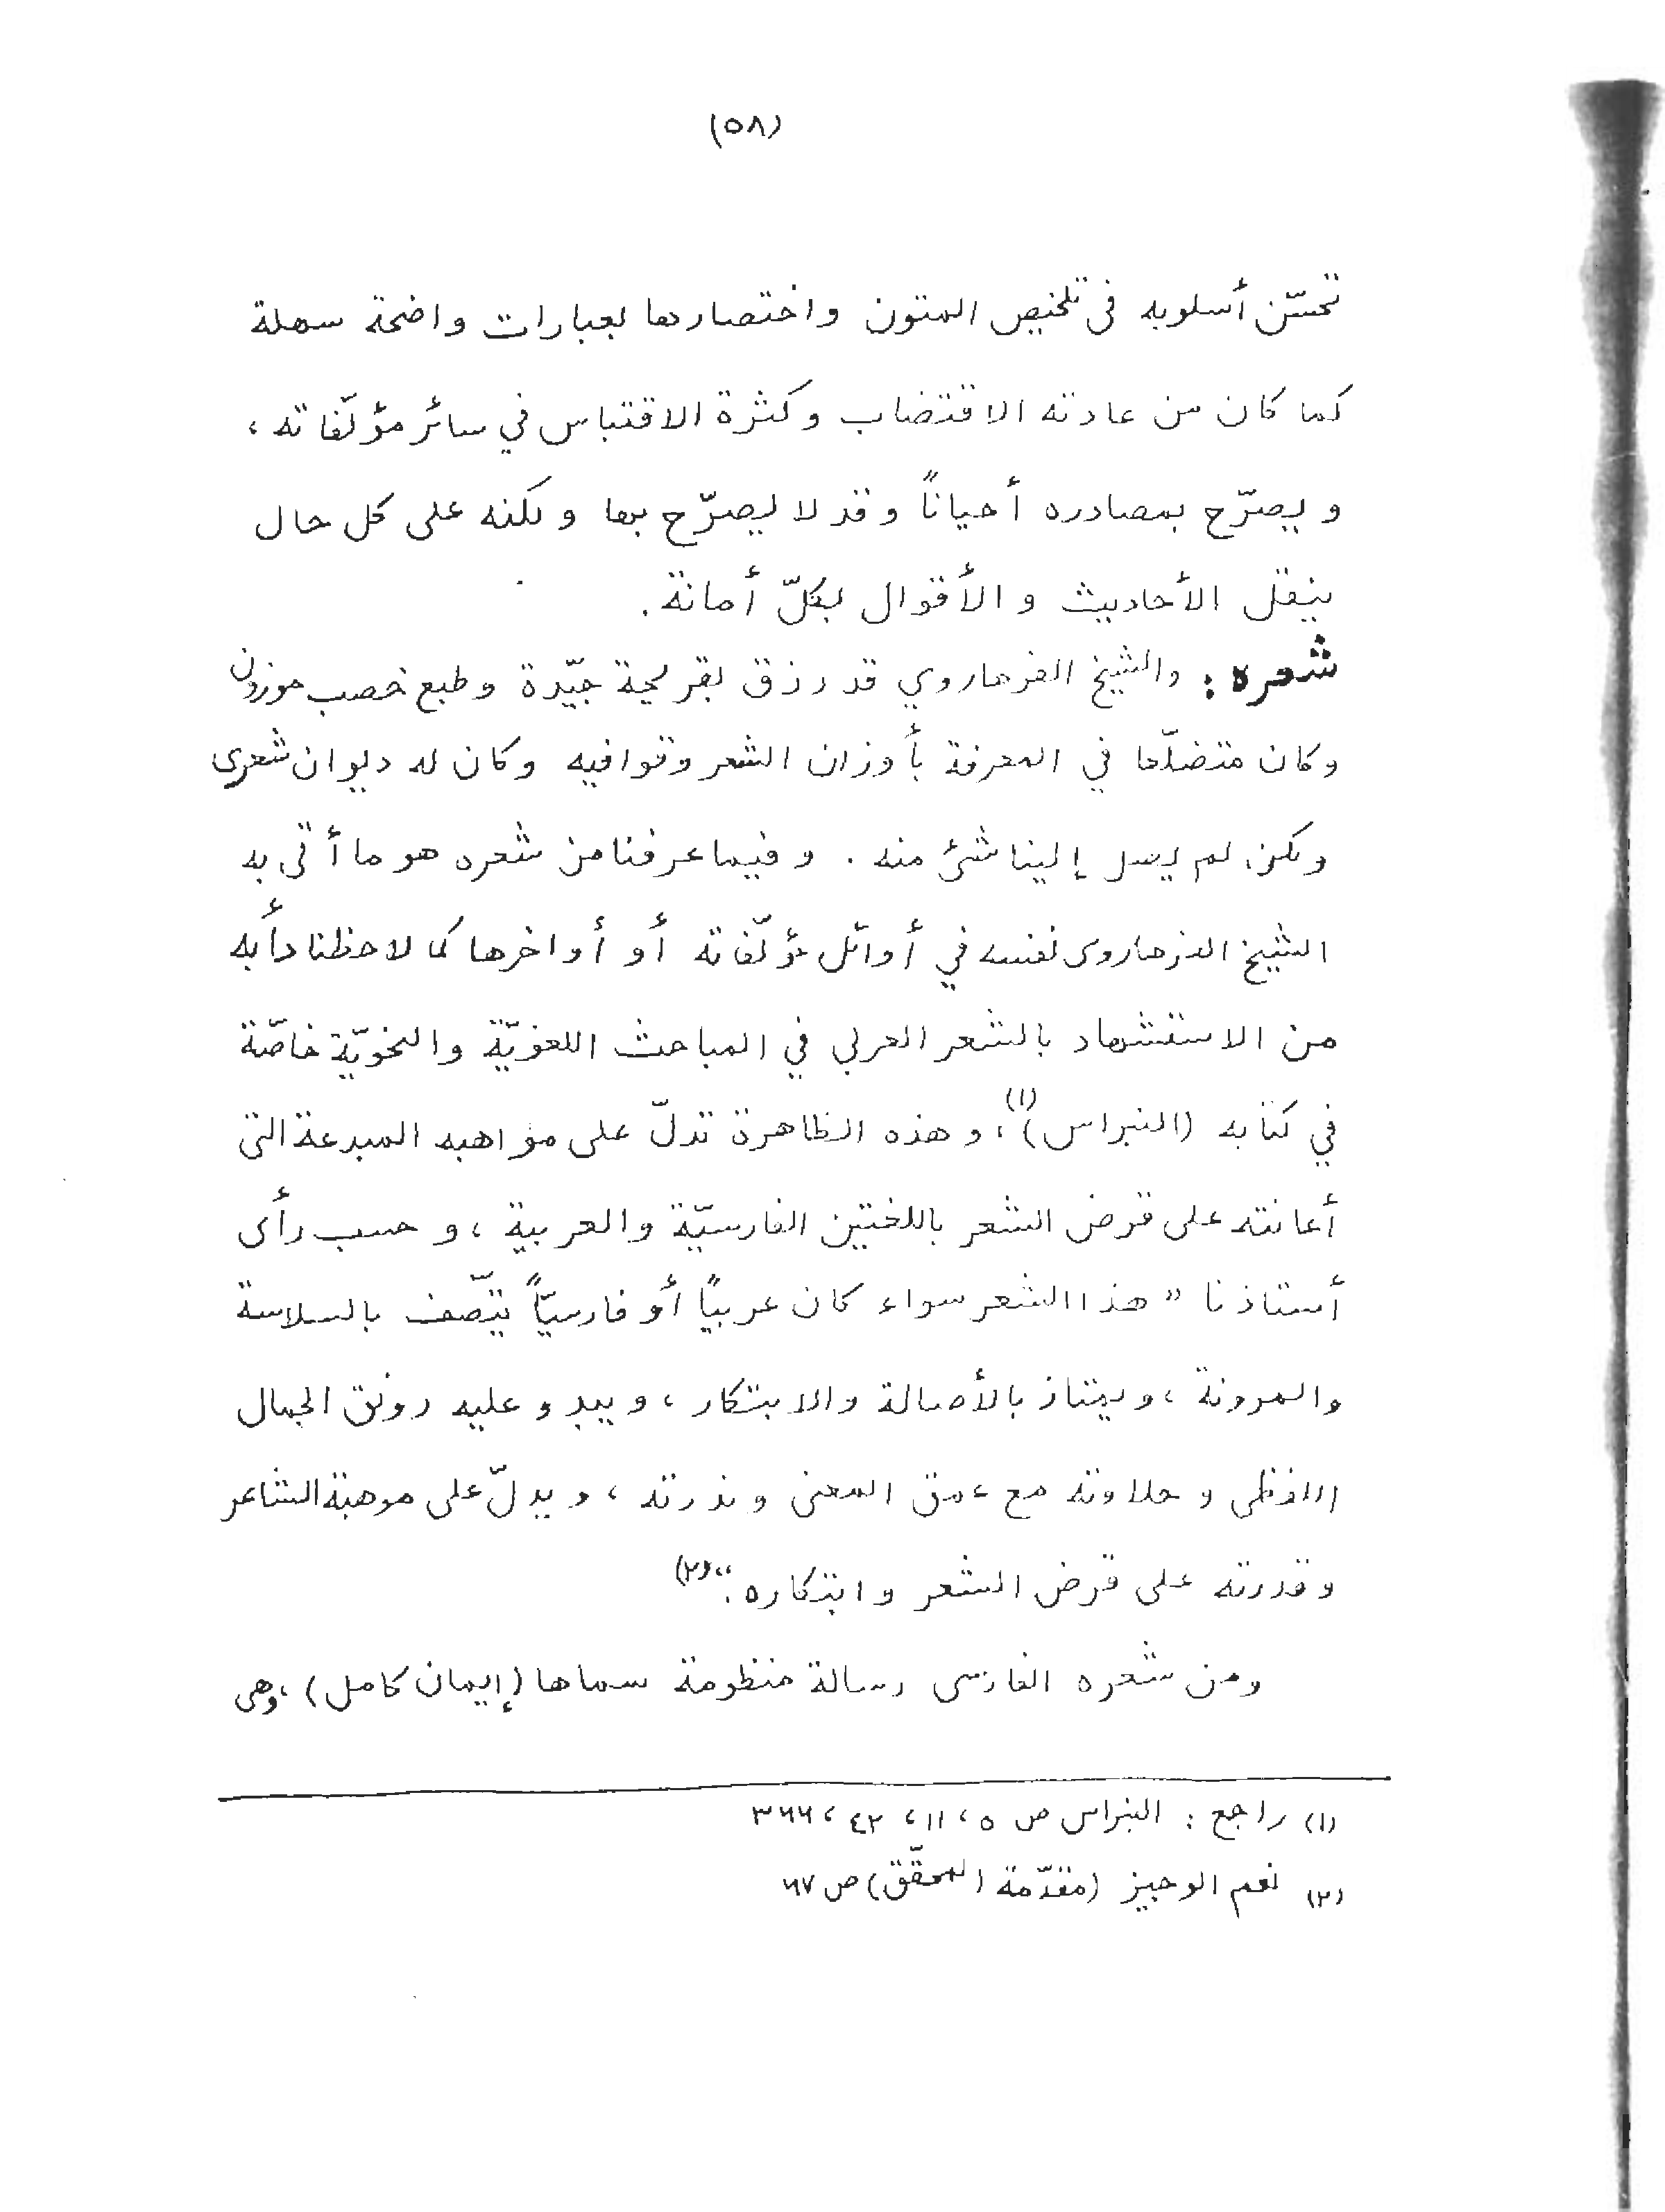 (٥٨)
تحسّن أسلوبه في تلخيص المتون واختصارها بعبارات واضحة سهلة
كما كان من عادته الاقتضاب وكثرة الاقتباس في سائر مؤلّفاته ،
ويصرّح بمصادره أحياناً وقد لا يصرّح بها ولكنه على كل حال
ينقل الأحاديث والأقوال بكلّ أمانة .
شعره : والشيخ الفرهاروي قد رزق بقريحة جيّدة وطبع خصب موزون
وكان متضلّعا في المعرفة بأوزان الشعر وقوافيه وكان له ديوان شعرى
ولكن لم يصل إلينا شئ منه . وفيما عرفنا من شعره هو ما أتى به
الشيخ الفرهاروى نفسه في أوائل مؤلّفاته أو أواخرها كما لاحظنا دأبه
من الاستشهاد بالشعر العربي في المباحث اللغويّة والنحويّة خاصّة
في كتابه (النبراس)(١) ، وهذه الظاهرة تدلّ على مواهبه المبدعة التى
أعانته على قرض الشعر باللغتين الفارسيّة والعربية ، وحسب رأى
أستاذنا " هذا الشعر سواء كان عربيًا أو فارسيّاً يتّصف بالسلاسة
والمرونة ، ويمتاز بالأصالة والابتكار ، ويبدو عليه رونق الجمال
اللفظى وحلاوته مع عمق المعنى وندرته ، ويدلّ على موهبة الشاعر
وقدرته على قرض الشعر وابتكاره . "(٢)
ومن شعره الفارسى رسالة منظومة سماها (إيمان كامل) ، وهى
(١) راجع : النبراس ص ٥ ، ١١ ، ٤٢ ، ٣٦٦
(٢) نعم الوجيز (مقدّمة المحقّق) ص ٦٧